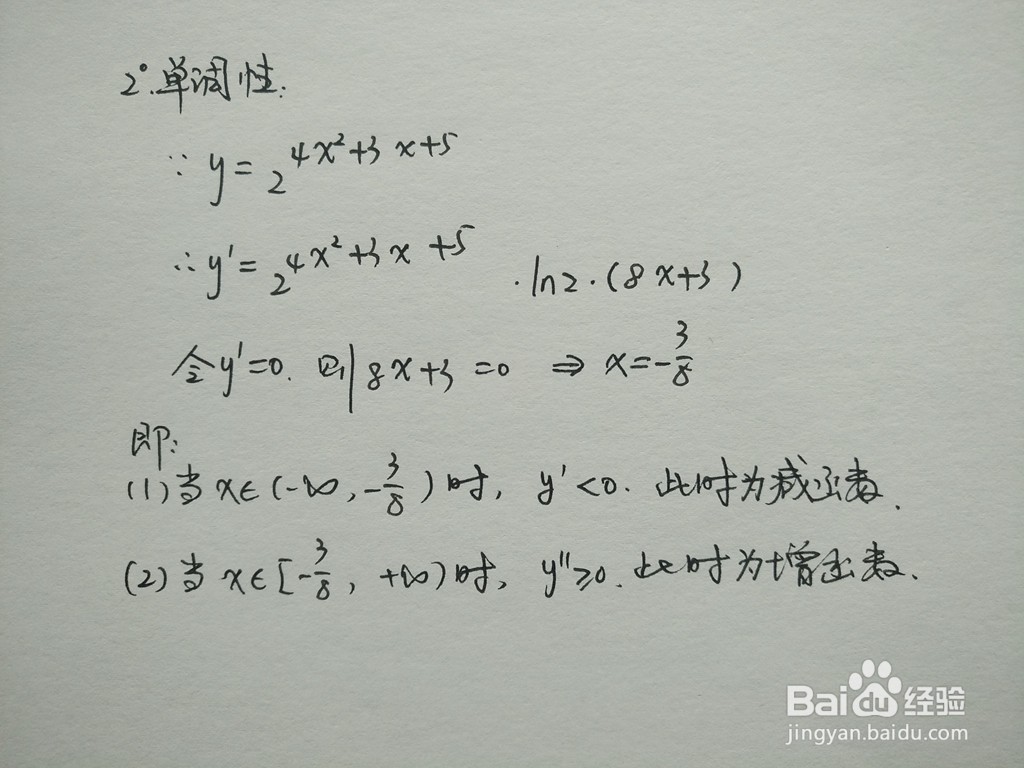 2°.单调性:
∵ y = 2^{4x²+3x+5}
∴ y' = 2^{4x²+3x+5} · ln2 · (8x+3)
令y'=0. 则 8x+3=0 ⇒ x=-3/8
即:
(1) 当 x∈(-∞,-3/8) 时, y'<0. 此时为减函数.
(2) 当 x∈[-3/8, +∞) 时, y''≥0. 此时为增函数.
Bai du 经验
jingyan.baidu.com